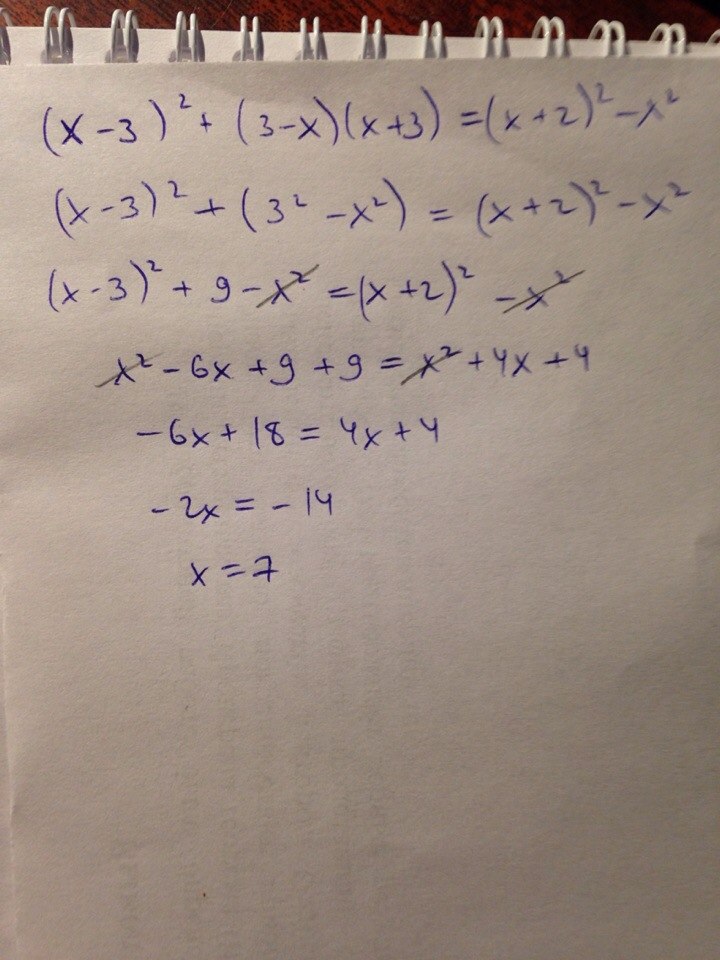 (x-3)² + (3-x)(x+3) = (x+2)² - x²
(x-3)² + (3² - x²) = (x+2)² - x²
(x-3)² + 9 - x² = (x+2)² - x²
x² - 6x + 9 + 9 = x² + 4x + 4
-6x + 18 = 4x + 4
-2x = -14
x = 7